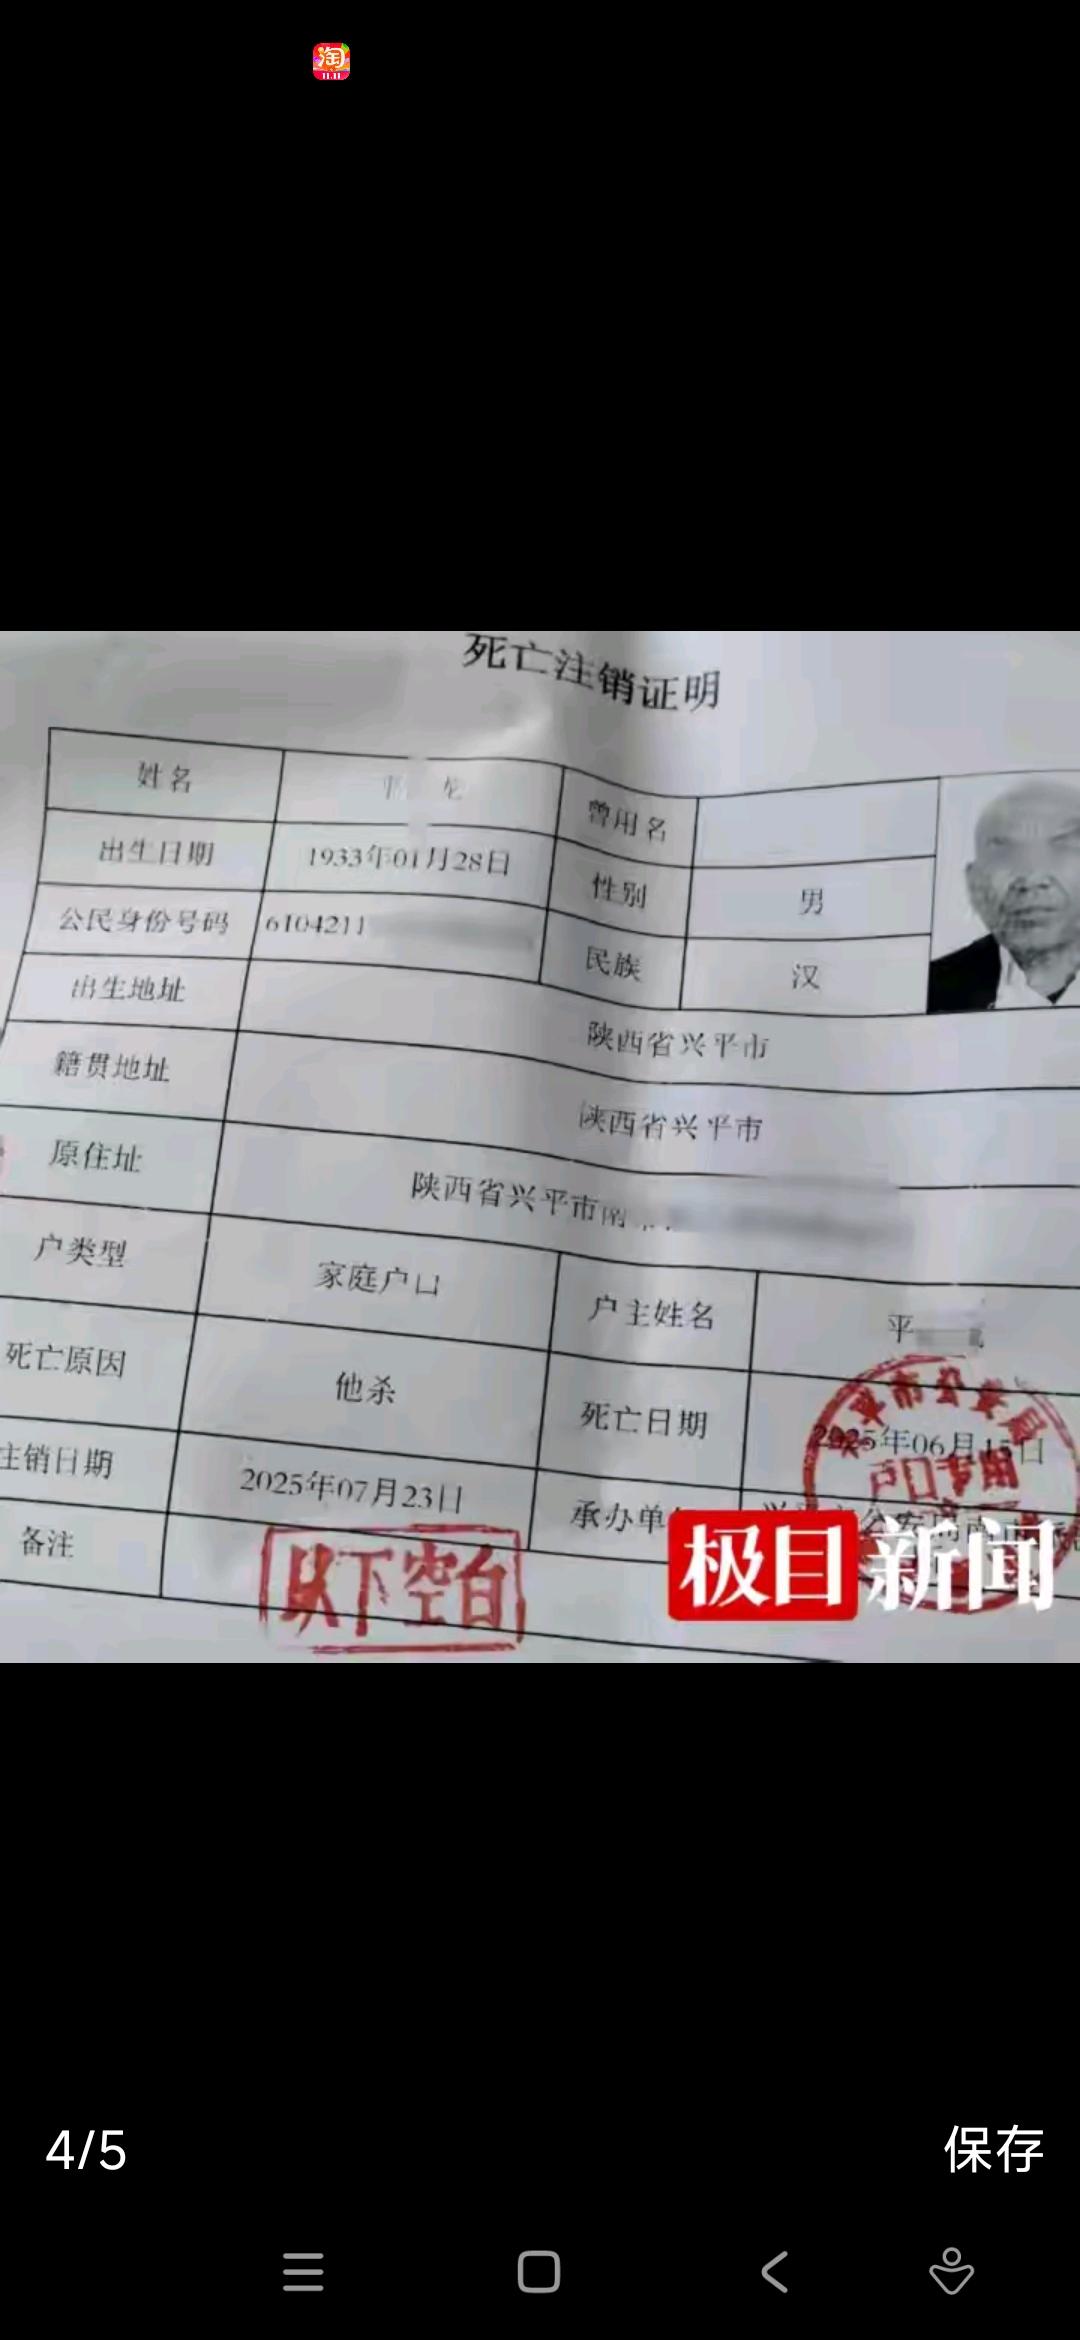 淘
11.11
死亡注销证明
姓名
曾用名
出生日期 1933年01月28日 性别 男
公民身份号码 6104211 民族 汉
出生地址 陕西省兴平市
籍贯地址 陕西省兴平市
原住址 陕西省兴平市南
户类型 家庭户口 户主姓名 平
死亡原因 他杀 死亡日期 2025年06月15日
注销日期 2025年07月23日 承办单
备注
以下空白
兴平市公安局
户口专用
极目新闻
4/5 保存